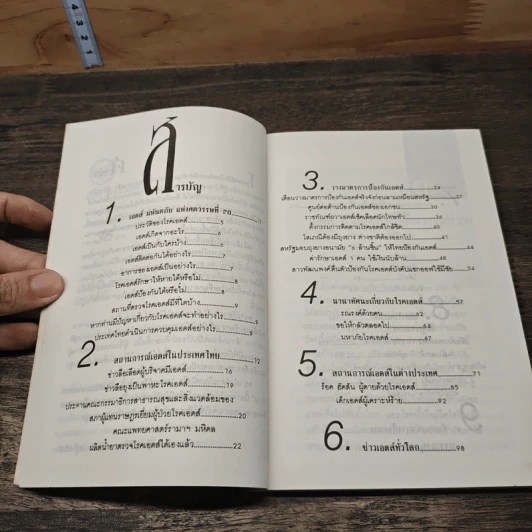 สารบัญ
1. เอดส์ มหันตภัย แห่งศตวรรษที่ 20 1
ประวัติของโรคเอดส์
เอดส์เกิดจากอะไร 6
เอดส์เป็นกับใครบ้าง 6
เอดส์ติดต่อกันได้อย่างไร 7
อาการของเอดส์เป็นอย่างไร 7
โรคเอดส์รักษาให้หายได้หรือไม่ 8
เอดส์ป้องกันได้หรือไม่ 8
สถานที่ตรวจโรคเอดส์มีที่ใดบ้าง 9
หากท่านมีปัญหาเกี่ยวกับโรคเอดส์จะทำอย่างไร 9
ประเทศไทยดำเนินการควบคุมเอดส์อย่างไร 9
2. สถานการณ์เอดส์ในประเทศไทย 12
ข่าวลือเลือดผู้บริจาคมีเอดส์ 16
ข่าวลือยุงเป็นพาหะโรคเอดส์ 19
ประธานคณะกรรมาธิการสาธารณสุขและสิ่งแวดล้อมของ
สภาผู้แทนราษฎรเยี่ยมผู้ป่วยโรคเอดส์ 20
คณะแพทยศาสตร์รามาฯ มหิดล
ผลิตน้ำยาตรวจโรคเอดส์ได้เองแล้ว 22
3. วางมาตรการป้องกันเอดส์ 24
เตือนวางมาตรการป้องกันเอดส์จริงจังก่อนลามเหมือนสหรัฐ 27
ศูนย์ต่อต้านป้องกันเอดส์ของเอกชน 30
ราชทัณฑ์ขวางเอดส์เชือดคือนักโทษทั่ว 33
ตั้งกรรมการติดตามโรคเอดส์ใกล้ชิด 40
ไต่เกมิต้องมีถุงยาง ต่างชาติต้องออกไป 41
สหรัฐมอบถุงยางอนามัย "6 ล้านชิ้น" ให้ไทยป้องกันเอดส์ 44
ค่ารักษาเอดส์ 1 คน ใช้เงินนับล้าน 48
สาวพัฒน์พงศ์ตื่นตัวป้องกันโรคเอดส์บังคับแขกออฟใช้มีชัย 54
4. นานาทัศนะเกี่ยวกับโรคเอดส์ 57
รณรงค์ด้วยคน 62
ขอให้กลัวตลอดไป 64
มหาภัยโรคเอดส์ 68
5. สถานการณ์เอดส์ในต่างประเทศ 71
ร็อค ฮัดสัน ผู้ตายด้วยโรคเอดส์ 85
เด็กเอดส์ผู้เคราะห์ร้าย 92
6. ข่าวเอดส์ทั่วโลก 98
4 3 2 1